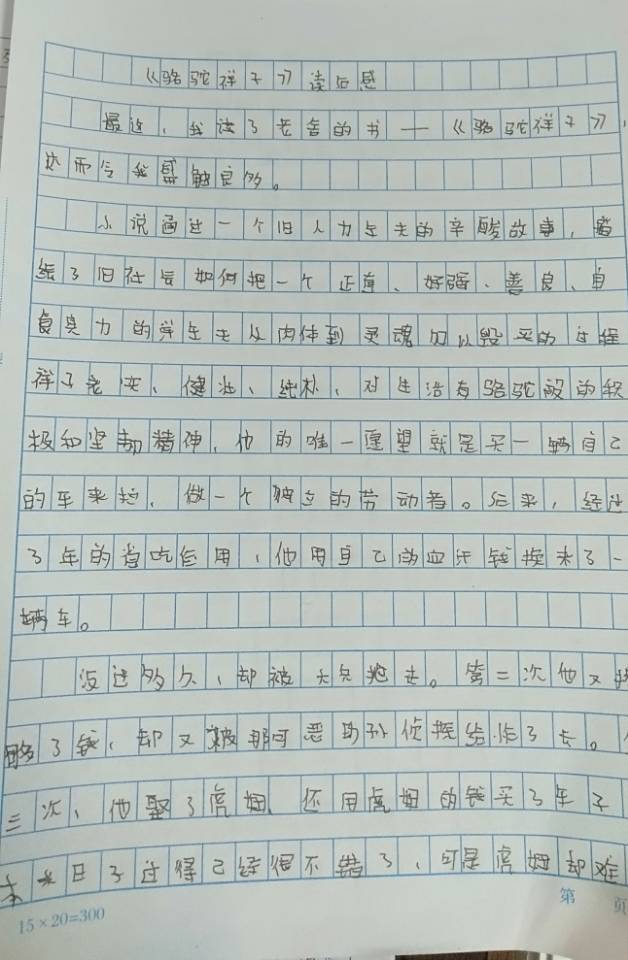 《骆驼祥子》读后感
最近，我读了老舍的书——《骆驼祥子》，
达而令我感触良多。
小说通过一个旧人力车夫的辛酸故事，描
绘了旧社会如何把一个正直、好强、善良、自
食其力的洋车夫从肉体到灵魂加以毁灭的过程
祥子老实、健壮、纯朴、对生活有骆驼般的积
极和坚韧精神，他的唯一愿望就是买一辆自己
的车来拉，做一个独立的劳动者。后来，经过
3年的省吃俭用，他用自己的血汗钱换来了一
辆车。
没过多久，却被大兵抢走。第二次他又
够了钱，却又被那可恶的孙侦探给诈了去。
三次，他娶了虎妞，还用虎妞的钱买了车子
本来日子过得已经很不错了，可是虎妞却难
15×20=300
第 页